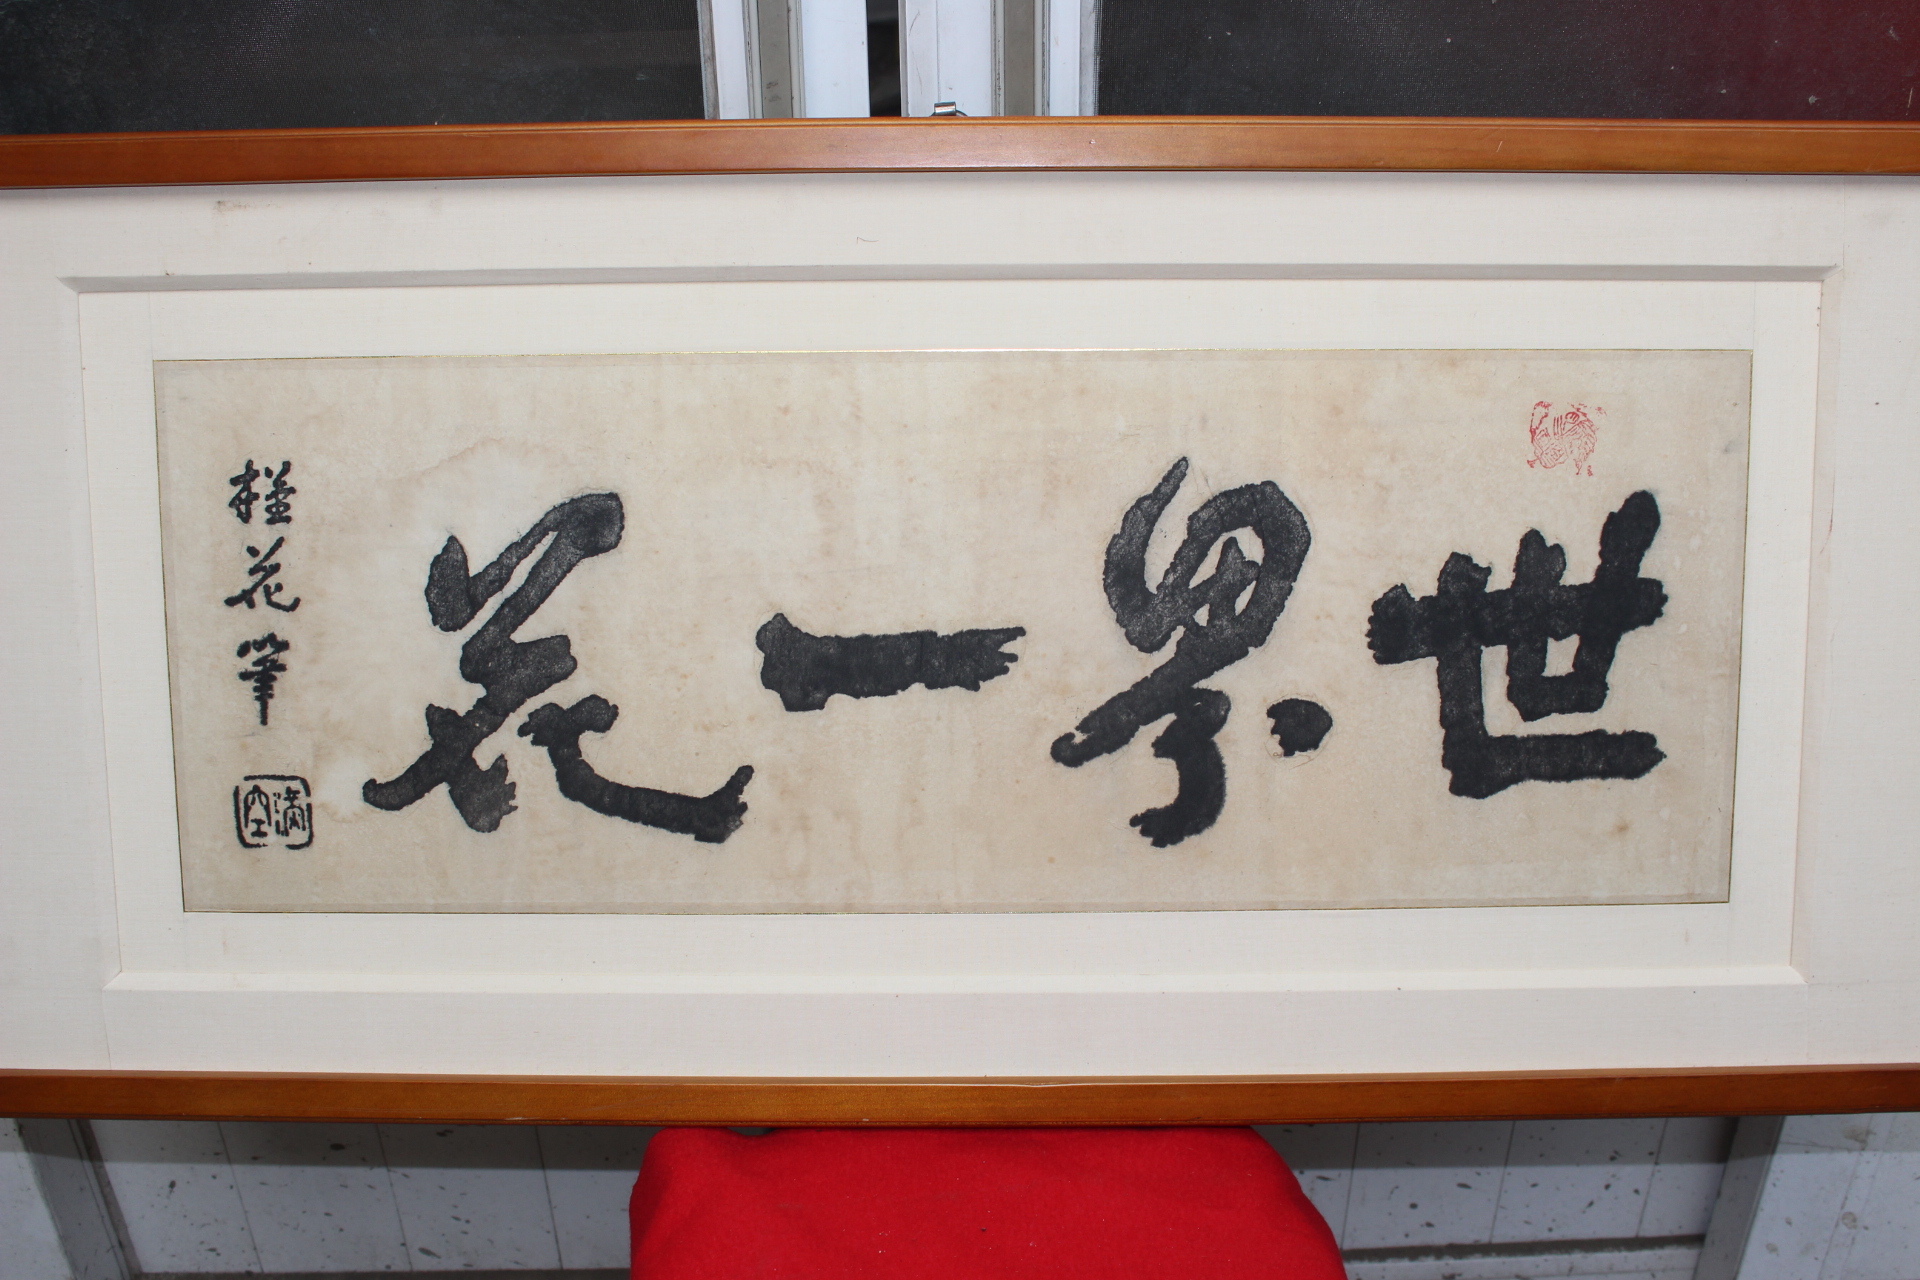 世界一花
槿花筆
滿空